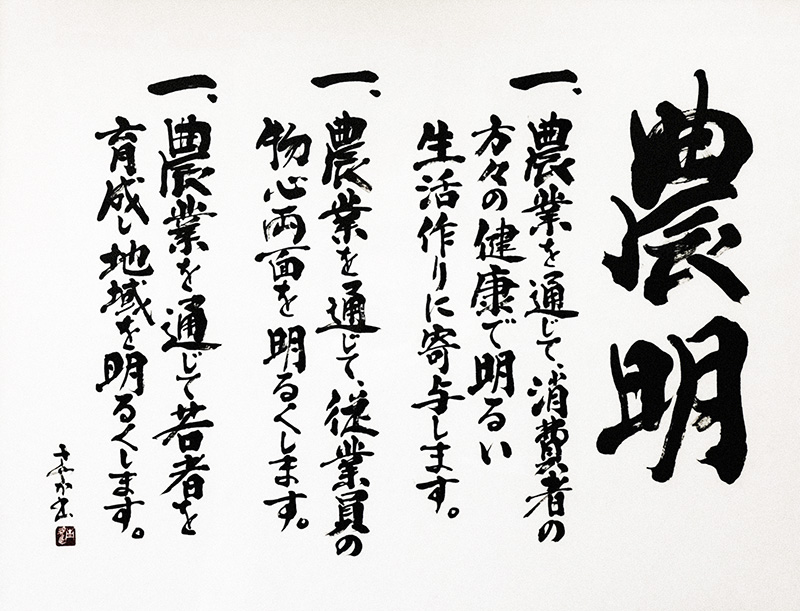 農明
一、農業を通じて、消費者の
方々の健康で明るい
生活作りに寄与します。
一、農業を通じて、従業員の
物心両面を明るくします。
一、農業を通じて若者を
育成し地域を明るくします。